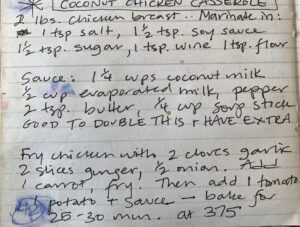 * COCONUT CHICKEN CASSEROLE
2 lbs. chicken breast.. Marinate in:
1 tsp salt, 1 1/2 tsp. soy sauce
1 1/2 tsp. sugar, 1 tsp. wine 1 tsp. flour
Sauce: 1 1/4 cups coconut milk
1/2 cup evaporated milk, pepper
2 tsp. butter, 1/4 cup soup stock
GOOD TO DOUBLE THIS + HAVE EXTRA
Fry chicken with 2 cloves garlic
2 slices ginger, 1/2 onion. Add
1 carrot, fry. Then add 1 tomato
1 potato + sauce — bake for
25-30 min. at 375